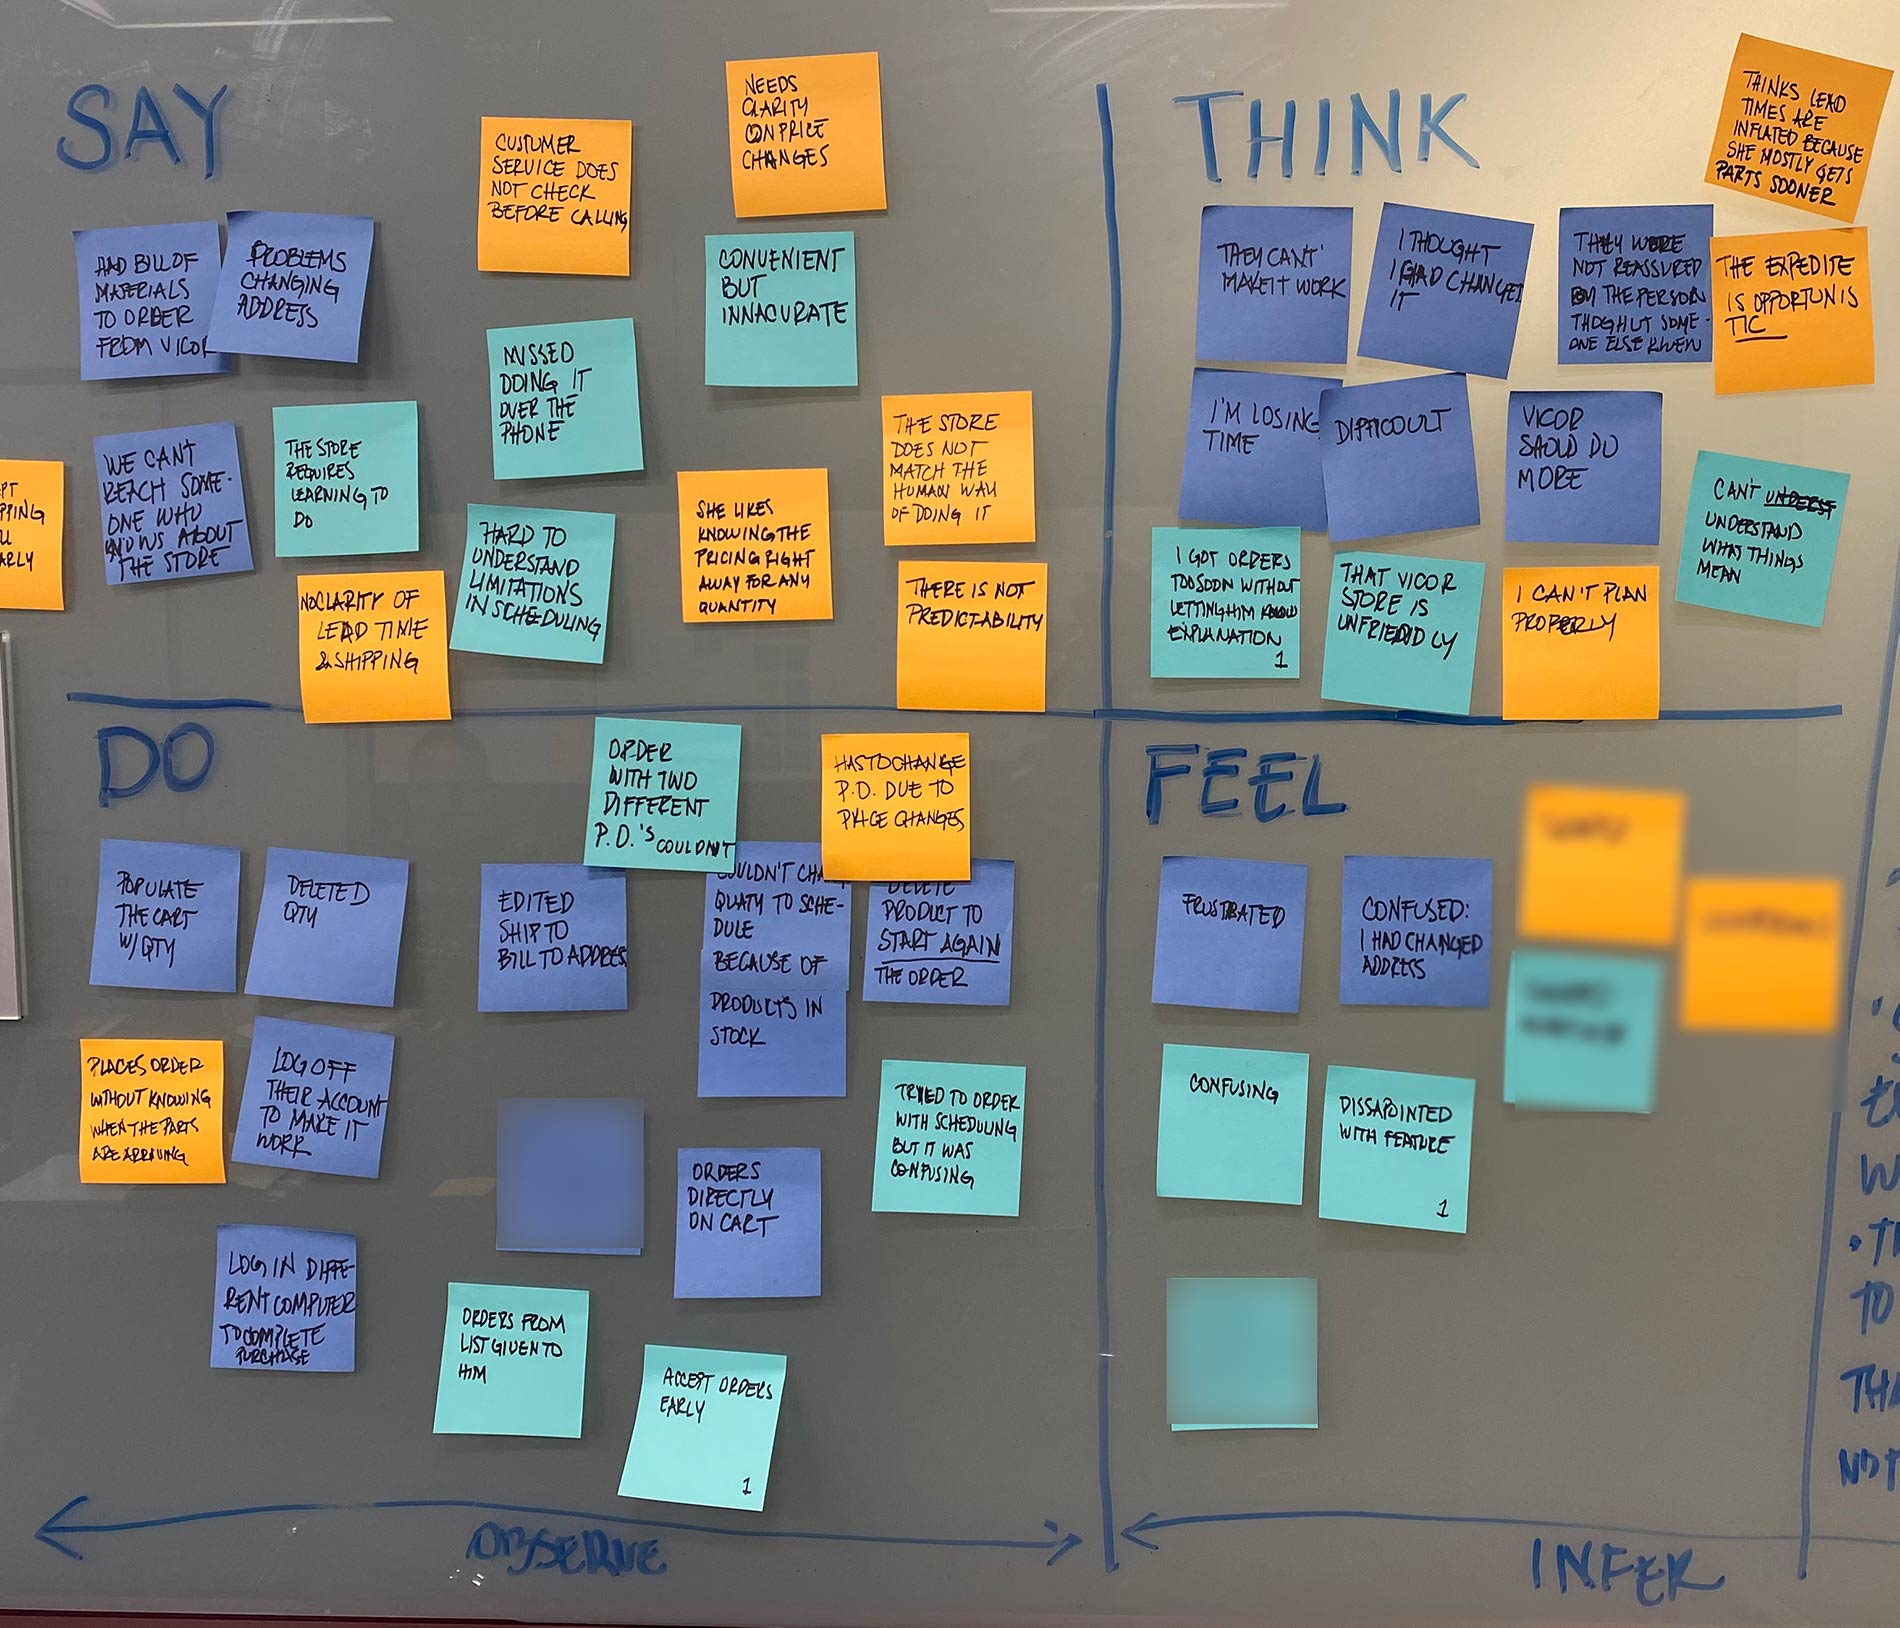 SAY
NEEDS
CLARITY
ON PRICE
CHANGES
CUSTUMER
SERVICE DOES
NOT CHECK
BEFORE CALLING
HAD BILL OF
MATERIALS
TO ORDER
FROM VICOR
PROBLEMS
CHANGING
ADDRESS
CONVENIENT
BUT
INNACURATE
MISSED
DOING IT
OVER THE
PHONE
WE CAN'T
REACH SOME-
ONE WHO
KNOWS ABOUT
THE STORE
THE STORE
REQUIRES
LEARNING TO
DO
THE STORE
DOES NOT
MATCH THE
HUMAN WAY
OF DOING IT
SHE LIKES
KNOWING THE
PRICING RIGHT
AWAY FOR ANY
QUANTITY
HARD TO
UNDERSTAND
LIMITATIONS
IN SCHEDULING
NO CLARITY OF
LEAD TIME
& SHIPPING
THERE IS NOT
PREDICTABILITY
THINK
THINKS LEAD
TIMES ARE
INFLATED BECAUSE
SHE MOSTLY GETS
PARTS SOONER
THEY CAN'T
MAKE IT WORK
I THOUGHT
I HAD CHANGED
IT
THEY WERE
NOT REASSURED
BY THE PERSON
THOGHUT SOME-
ONE ELSE KNEW
THE EXPEDITE
IS OPPORTUNIS
TIC
I'M LOSING
TIME
DIFFICOULT
VICOR
SHOULD DO
MORE
CAN'T UNDERST
UNDERSTAND
WHAT THINGS
MEAN
I GOT ORDERS
TOO SOON WITHOUT
LETTING HIM KNOW
EXPLANATION
1
THAT VICOR
STORE IS
UNFRIENDLY
I CAN'T PLAN
PROPERLY
DO
ORDER
WITH TWO
DIFFERENT
P.O.'S COULDN'T
HAS TO CHANGE
P.O. DUE TO
PRICE CHANGES
POPULATE
THE CART
W/ QTY
DELETED
QTY
EDITED
SHIP TO
BILL TO ADDRESS
COULDN'T
QUATY TO SCHE-
DULE
BECAUSE OF
PRODUCTS IN
STOCK
DELETE
PRODUCT TO
START AGAIN
THE ORDER
PLACES ORDER
WITHOUT KNOWING
WHEN THE PARTS
ARE ARRIVING
LOG OFF
THEIR ACCOUNT
TO MAKE IT
WORK
TRIED TO ORDER
WITH SCHEDULING
BUT IT WAS
CONFUSING
ORDERS
DIRECTLY
ON CART
LOG IN DIFFE-
RENT COMPUTER
TO COMPLETE
PURCHASE
ORDERS FROM
LIST GIVEN TO
HIM
ACCEPT ORDERS
EARLY
1
FEEL
FRUSTRATED
CONFUSED:
I HAD CHANGED
ADDRESS
CONFUSING
DISSAPOINTED
WITH FEATURE
1
OBSERVE
INFER